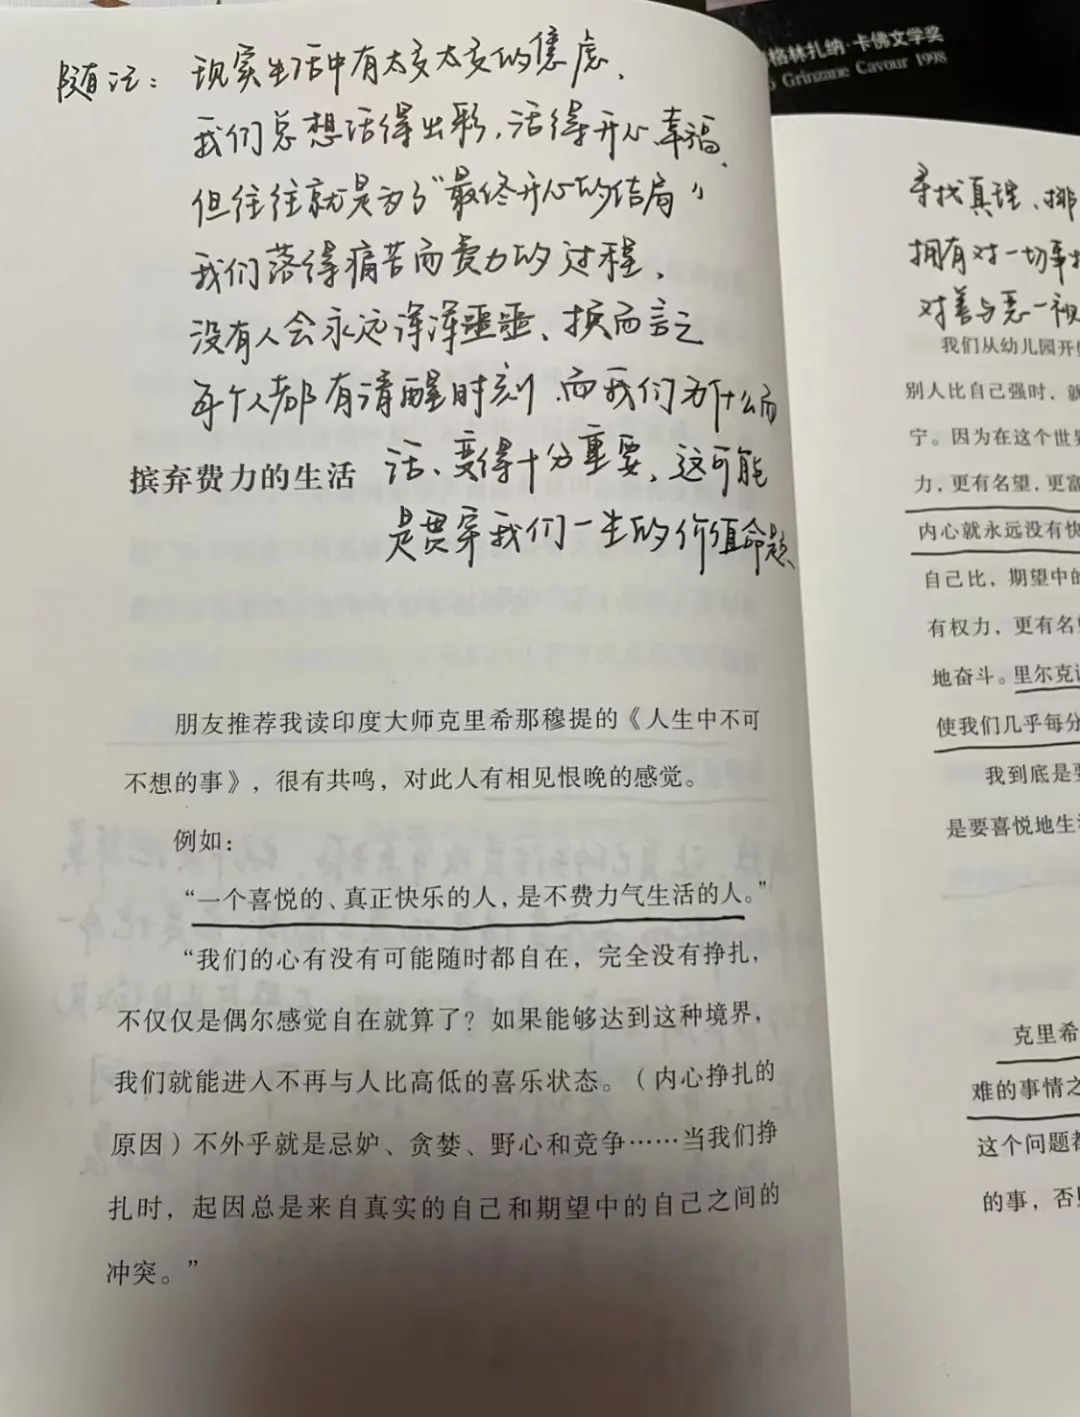 随注：现实生活中有太多太多的焦虑、
我们总想活得出彩，活得开心幸福、
但往往就是为了“最终开心的结局”
我们落得痛苦而费力的过程、
没有人会永远浑浑噩噩、换而言之
每个人都有清醒时刻.而我们为什么而
活、变得十分重要，这可能
是贯穿我们一生的价值命题、
摈弃费力的生活
朋友推荐我读印度大师克里希那穆提的《人生中不可
不想的事》，很有共鸣，对此人有相见恨晚的感觉。
例如：
“一个喜悦的、真正快乐的人，是不费力气生活的人。”
“我们的心有没有可能随时都自在，完全没有挣扎，
不仅仅是偶尔感觉自在就算了？如果能够达到这种境界，
我们就能进入不再与人比高低的喜乐状态。（内心挣扎的
原因）不外乎就是忌妒、贪婪、野心和竞争……当我们挣
扎时，起因总是来自真实的自己和期望中的自己之间的
冲突。”
格林扎纳·卡佛文学奖
Grinzane Cavour 1998
寻找真理、排
拥有对一切事
对善与恶一视
我们从幼儿园开
别人比自己强时，就
宁。因为在这个世界
力，更有名望，更富
内心就永远没有快
自己比，期望中的
有权力，更有名望
地奋斗。里尔克
使我们几乎每分
我到底是要
是要喜悦地生
克里希
难的事情之
这个问题都
的事，否